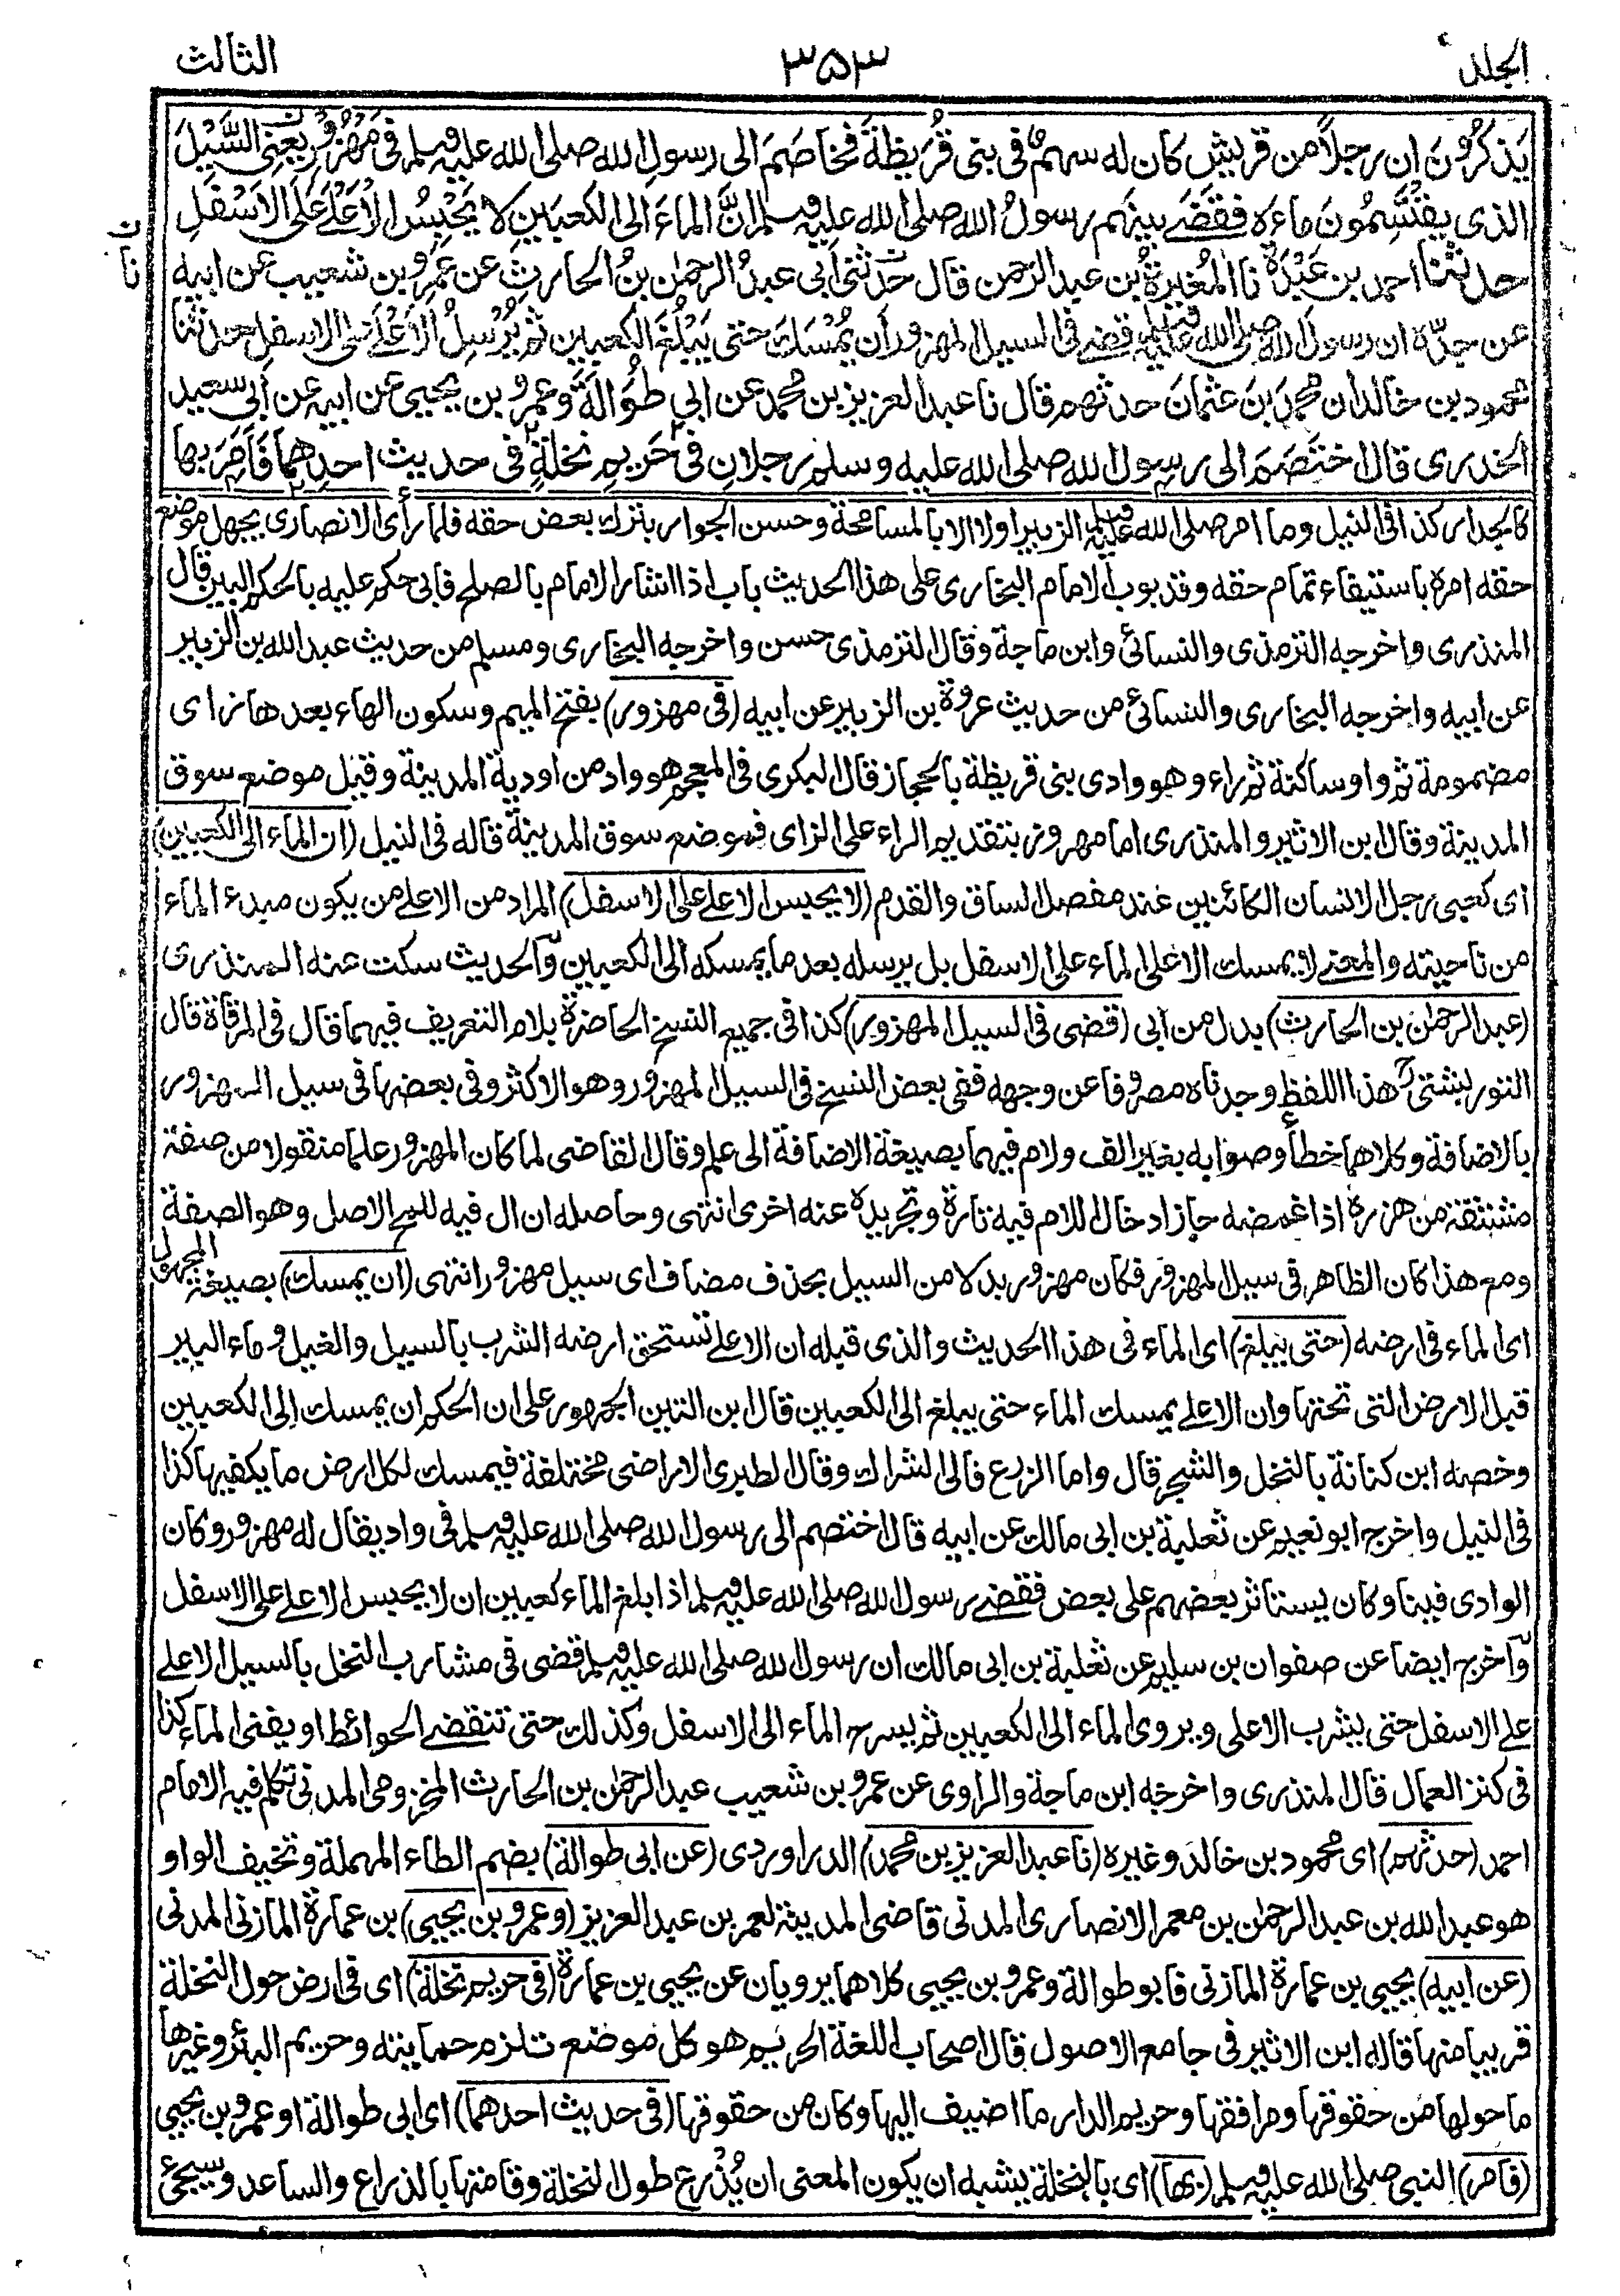 الجلد ٣٥٣ الثالث
يَذكرُونَ ان رجلاً من قريش كان له سهمٌ فى بنى قُرَيظةَ فخاصَمَ الى رسولِ الله صلى الله عليه وسلم فى مَهْزُورٍ يعنِى السَّيْلَ
الذى يقتَسِمُونَ ماءه فقضے بينهم رسولُ الله صلى الله عليه وسلم انَّ الماءَ الى الكعبَينِ لا يَحْبِسُ الاَعْلےٰ عَلَى الاَسْفَلِ
حدثنا احمد بن عَبْدَةَ نا المُغيرةُ بن عبد الرحمن قال حدّثنى ابى عبدُ الرحمٰن بنُ الحارثِ عن عمرِو بن شعيب عن ابيه
نا
عن جدّه ان رسول الله صلى الله عليه وسلم قضے فى السيل المهزور ان يُمْسَكَ حتى يَبْلُغَ الكعبين ثم يُرْسِلُ الاَعْلےٰ على الاسفلِ حدثنا
محمود بن خالد ان محمدَ بنَ عثمانَ حدثهم قال نا عبد العزيز بن محمد عن ابى طُوَالةَ وعمرِو بن يحيى عن ابيه عن ابى سعيد
الخدرى قال اختَصَمَ الى رسول الله صلى الله عليه وسلم رجلانِ فى حَرِيمِ نخلةٍ فى حديث احدِهما فاَمَرَ بها
كالجدار كذا فى النيل وما امر صلى الله عليه وسلم الزبير اولا الا بالمسامحة وحسن الجوار بترك بعض حقه فلما رأى الانصارى يجهل موضع
حقه امره باستيفاء تمام حقه وقد بوب الامام البخارى على هذا الحديث باب اذا اشار الامام بالصلح فابى حكم عليه بالحكم البين قال
المنذرى واخرجه الترمذى والنسائى وابن ماجة وقال الترمذى حسن واخرجه البخارى ومسلم من حديث عبد الله بن الزبير
عن ابيه واخرجه البخارى والنسائى من حديث عروة بن الزبير عن ابيه (فى مهزور) بفتح الميم وسكون الهاء بعدها زاى
مضمومة ثم واو ساكنة ثم راء وهو وادى بنى قريظة بالحجاز قال البكرى فى المعجم هو واد من اودية المدينة وقيل موضع سوق
المدينة وقال ابن الاثير والمنذرى اما مهروز بتقديم الراء على الزاى فموضع سوق المدينة قاله فى النيل (ان الماء الى الكعبين)
اى كعبى رجل الانسان الكائنين عند مفصل الساق والقدم (لا يحبس الاعلے على الاسفل) المراد من الاعلے من يكون مبدء الماء
من ناحيته والمعنے لا يمسك الاعلى الماء على الاسفل بل يرسله بعد ما يمسكه الى الكعبين والحديث سكت عنه المنذرى
(عبد الرحمٰن بن الحارث) بدل من ابى (قضى فى السيل المهزور) كذا فى جميع النسخ الحاضرة بلام التعريف فيهما قال فى المرقاة قال
التوربشتى هذا اللفظ وجدناه مصروفا عن وجهه ففى بعض النسخ فى السيل المهزور وهو الاكثر وفى بعضها فى سيل المهزور
بالاضافة وكلاهما خطأ وصوابه بغير الف ولام فيهما بصيغة الاضافة الى علم وقال القاضى لما كان المهزور علما منقولا من صفة
مشتقة من هزره اذا غمضه جاز ادخال اللام فيه تارة وتجريده عنه اخرى انتهى وحاصله ان ال فيه للمح الاصل وهو الصفة
ومع هذا كان الظاهر فى سيل المهزور فكان مهزور بدلا من السيل بحذف مضاف اى سيل مهزور انتهى (ان يمسك) بصيغة المجهول
اى الماء فى ارضه (حتى يبلغ) اى الماء فى هذا الحديث والذى قبله ان الاعلے تستحق ارضه الشرب بالسيل والغيل وماء البير
قبل الارض التى تحتها وان الاعلے يمسك الماء حتى يبلغ الى الكعبين قال ابن التين الجمهور على ان الحكم ان يمسك الى الكعبين
وخصه ابن كنانة بالنخل والشجر قال واما الزرع فالى الشراك وقال الطبرى الاراضى مختلفة فيمسك لكل ارض ما يكفيها كذا
فى النيل واخرج ابو نعيم عن ثعلبة بن ابى مالك عن ابيه قال اختصم الى رسول الله صلى الله عليه وسلم فى واد يقال له مهزور وكان
الوادى فينا وكان يستاثر بعضهم على بعض فقضے رسول الله صلى الله عليه وسلم اذا بلغ الماء كعبين ان لا يحبس الاعلے على الاسفل
واخرج ايضا عن صفوان بن سليم عن ثعلبة بن ابى مالك ان رسول الله صلى الله عليه وسلم قضى فى مشارب النخل بالسيل الاعلے
علے الاسفل حتى يشرب الاعلى ويروى الماء الى الكعبين ثم يسرح الماء الى الاسفل وكذلك حتى تنقضے الحوائط او يفنى الماء كذا
فى كنز العمال قال المنذرى واخرجه ابن ماجة والراوى عن عمرو بن شعيب عبد الرحمٰن بن الحارث المخزومى المدنى تكلم فيه الامام
احمد (حدثهم) اى محمود بن خالد وغيره (نا عبد العزيز بن محمد) الدراوردى (عن ابى طوالة) بضم الطاء المهملة وتخيف الواو
هو عبد الله بن عبد الرحمٰن بن معمر الانصارى المدنى قاضى المدينة لعمر بن عبد العزيز (وعمرو بن يحيى) بن عمارة المازنى المدنى
(عن ابيه) يحيى بن عمارة المازنى فابو طوالة وعمرو بن يحيى كلاهما يرويان عن يحيى بن عمارة (فى حريم نخلة) اى فى ارض حول النخلة
قريبا منها قاله ابن الاثير فى جامع الاصول قال اصحاب اللغة الحريم هو كل موضع تلزم حمايته وحريم البئر وغيرها
ما حولها من حقوقها ومرافقها وحريم الدار ما اضيف اليها وكان من حقوقها (فى حديث احدهما) اى ابى طوالة او عمرو بن يحيى
(فامر) النبى صلى الله عليه وسلم (بها) اى بالنخلة يشبه ان يكون المعنى ان يُذْرع طول النخلة وقامتها بالذراع والساعد وسيجئ